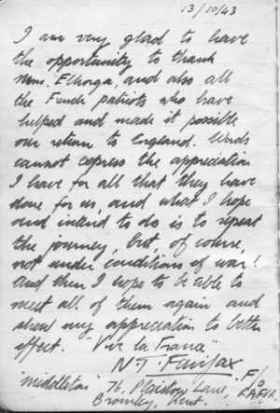 13/10/43
I am very glad to have
the opportunity to thank
Mme. Elhorga, and also all
the French patriots who have
helped and made it possible
our return to England. Words
cannot express the appreciation
I have for all that they have
done for us, and what I hope
and intend to do is to repeat
the journey, but, of course,
not under conditions of war!
and then I hope to be able to
meet all of them again and
show my appreciation to better
effect. "Viv la France"
N.T. Fairfax F/O
"Middleton" 76, Plaistow Lane,
Bromley, Kent.